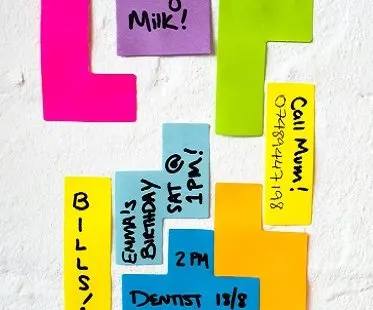 Milk!
Call Mum!
07489447198
EMMA'S
BIRTHDAY
SAT @
1PM!
BILLS!
2 PM
DENTIST 18/8